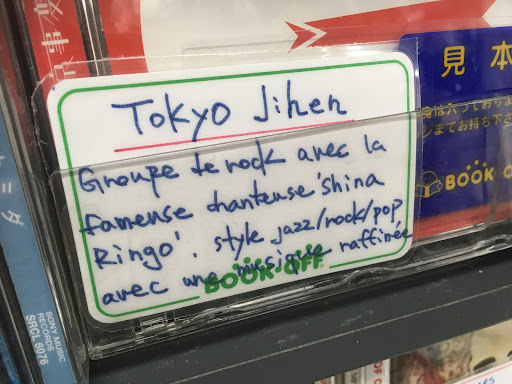 Tokyo Jihen
Groupe de rock avec la
fameuse chanteuse 'shina
Ringo'. style jazz/rock/pop,
avec une musique raffinée
BOOK·OFF
見本
BOOK O
SONY MUSIC
RECORDS
SRCL 6076